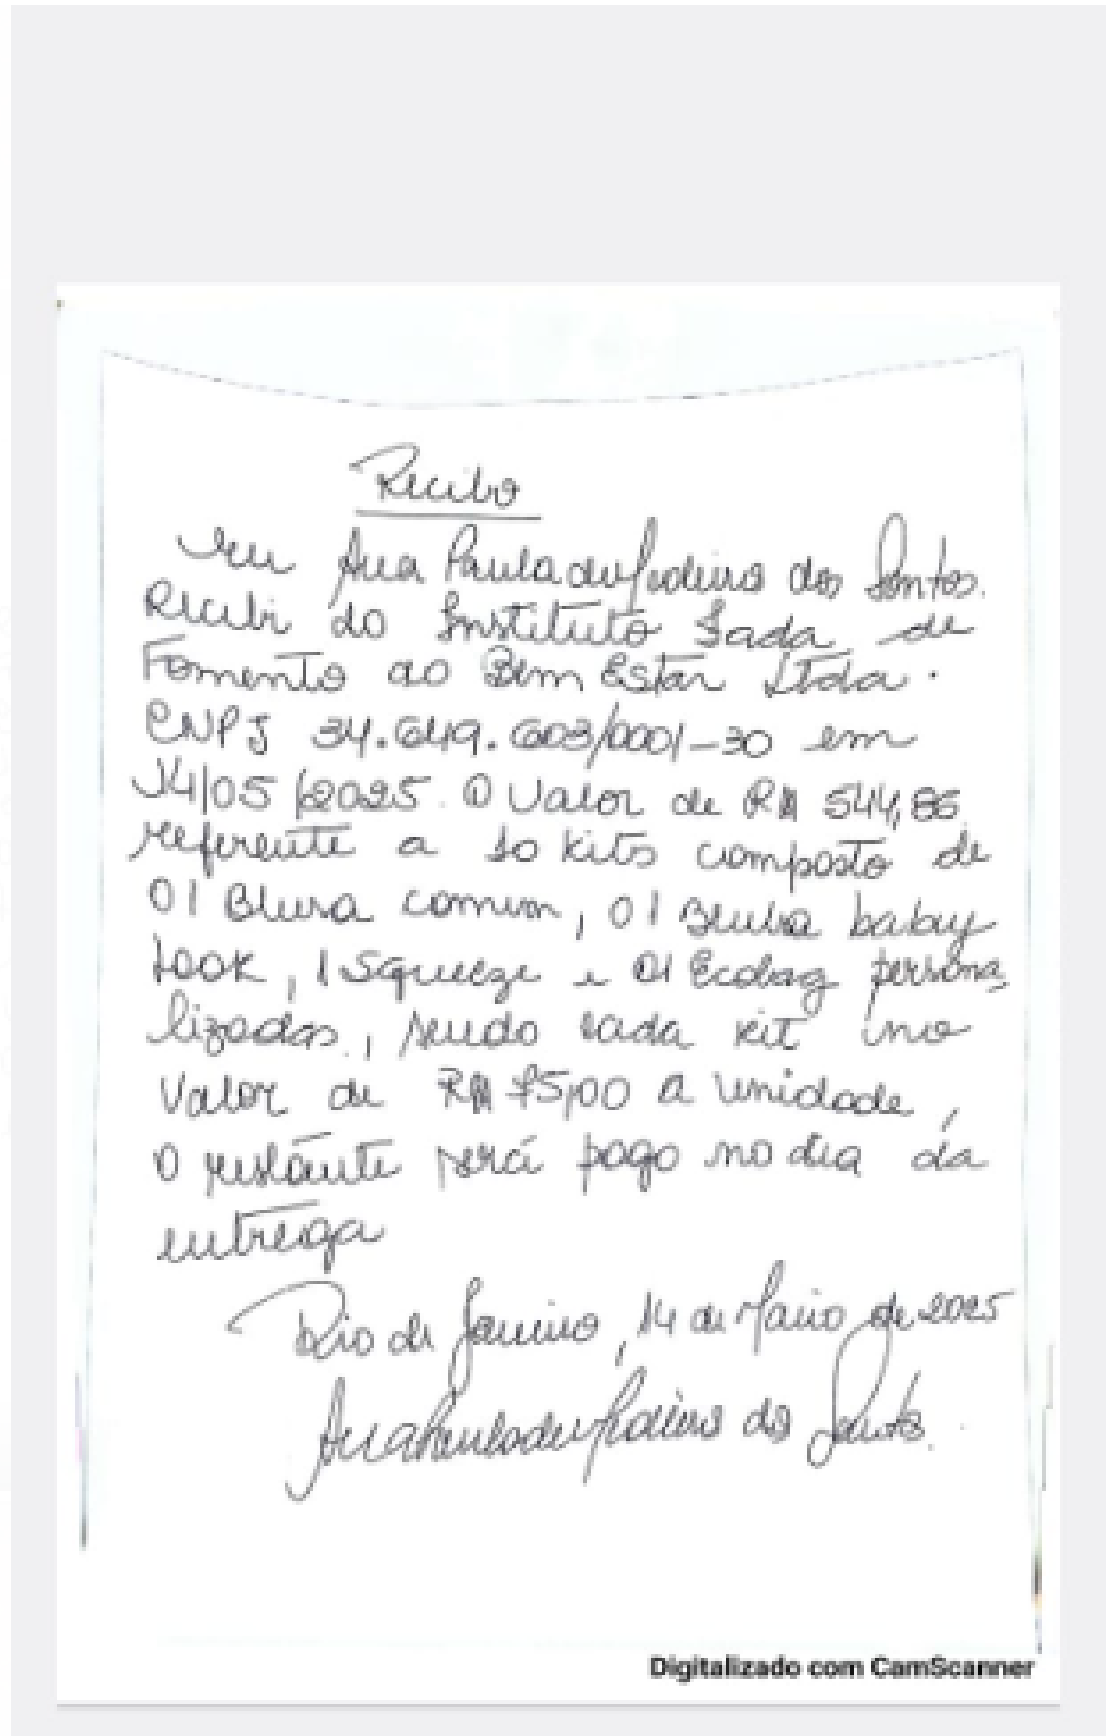 Recibo
Eu Ana Paula de Medeiros dos Santos.
Recibi do Instituto Sada de
Fomento ao Bem Estar Ltda.
CNPJ 34.649.603/0001-30 em
14/05/2025. O Valor de R$ 544,86
referente a 10 kits composto de
01 Blusa comum, 01 Blusa baby
look, 1 Squeeze e 01 Ecobag persona
lizadas, sendo cada kit no
Valor de R$ 75,00 a unidade,
O restante será pago no dia da
entrega
Rio de Janeiro, 14 de Maio de 2025
Ana Paula de Medeiros dos Santos.
Digitalizado com CamScanner